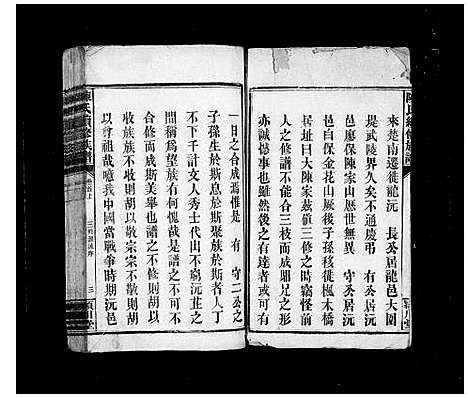 陳氏續修族譜
來楚南遷徙龍沅 長公居龍邑大圍
堤武陵界久矣不通慶弔 有公居沅
邑廖保陳家山歷世無異 守公居沅
邑白保金花山厥後子孫移徙楓木橋
居址曰大陳家茲値三修之時竊怪前
人之修譜不能合三枝而成賜兄之形
亦誠憾事也雖然後之有達者或可有
一日之合成焉惟是 有 守二公之
子孫生於斯息於斯聚族於斯者人丁
不下千計文人秀士代出不窮沅芷之
間稱爲望族有何愧哉是譜之不可不
合修而成斯美舉也譜之不修則胡以
收族族不收則胡以敬宗宗不敬則胡
以尊祖哉噫我中國當戰爭時期沅邑
陳氏續修族譜
卷首上
三
潁川堂